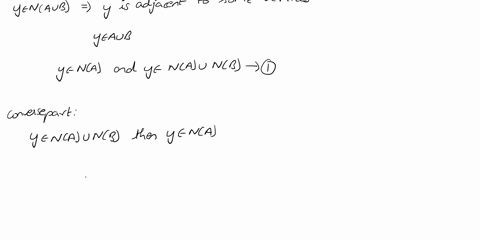 y∈N(A∪B) ⇒ y is adjacent to some vertices
y∈A∪B
y∈N(A) and y∈N(A)∪N(B) → ①
conversepart:
y∈N(A)∪N(B) then y∈N(A)